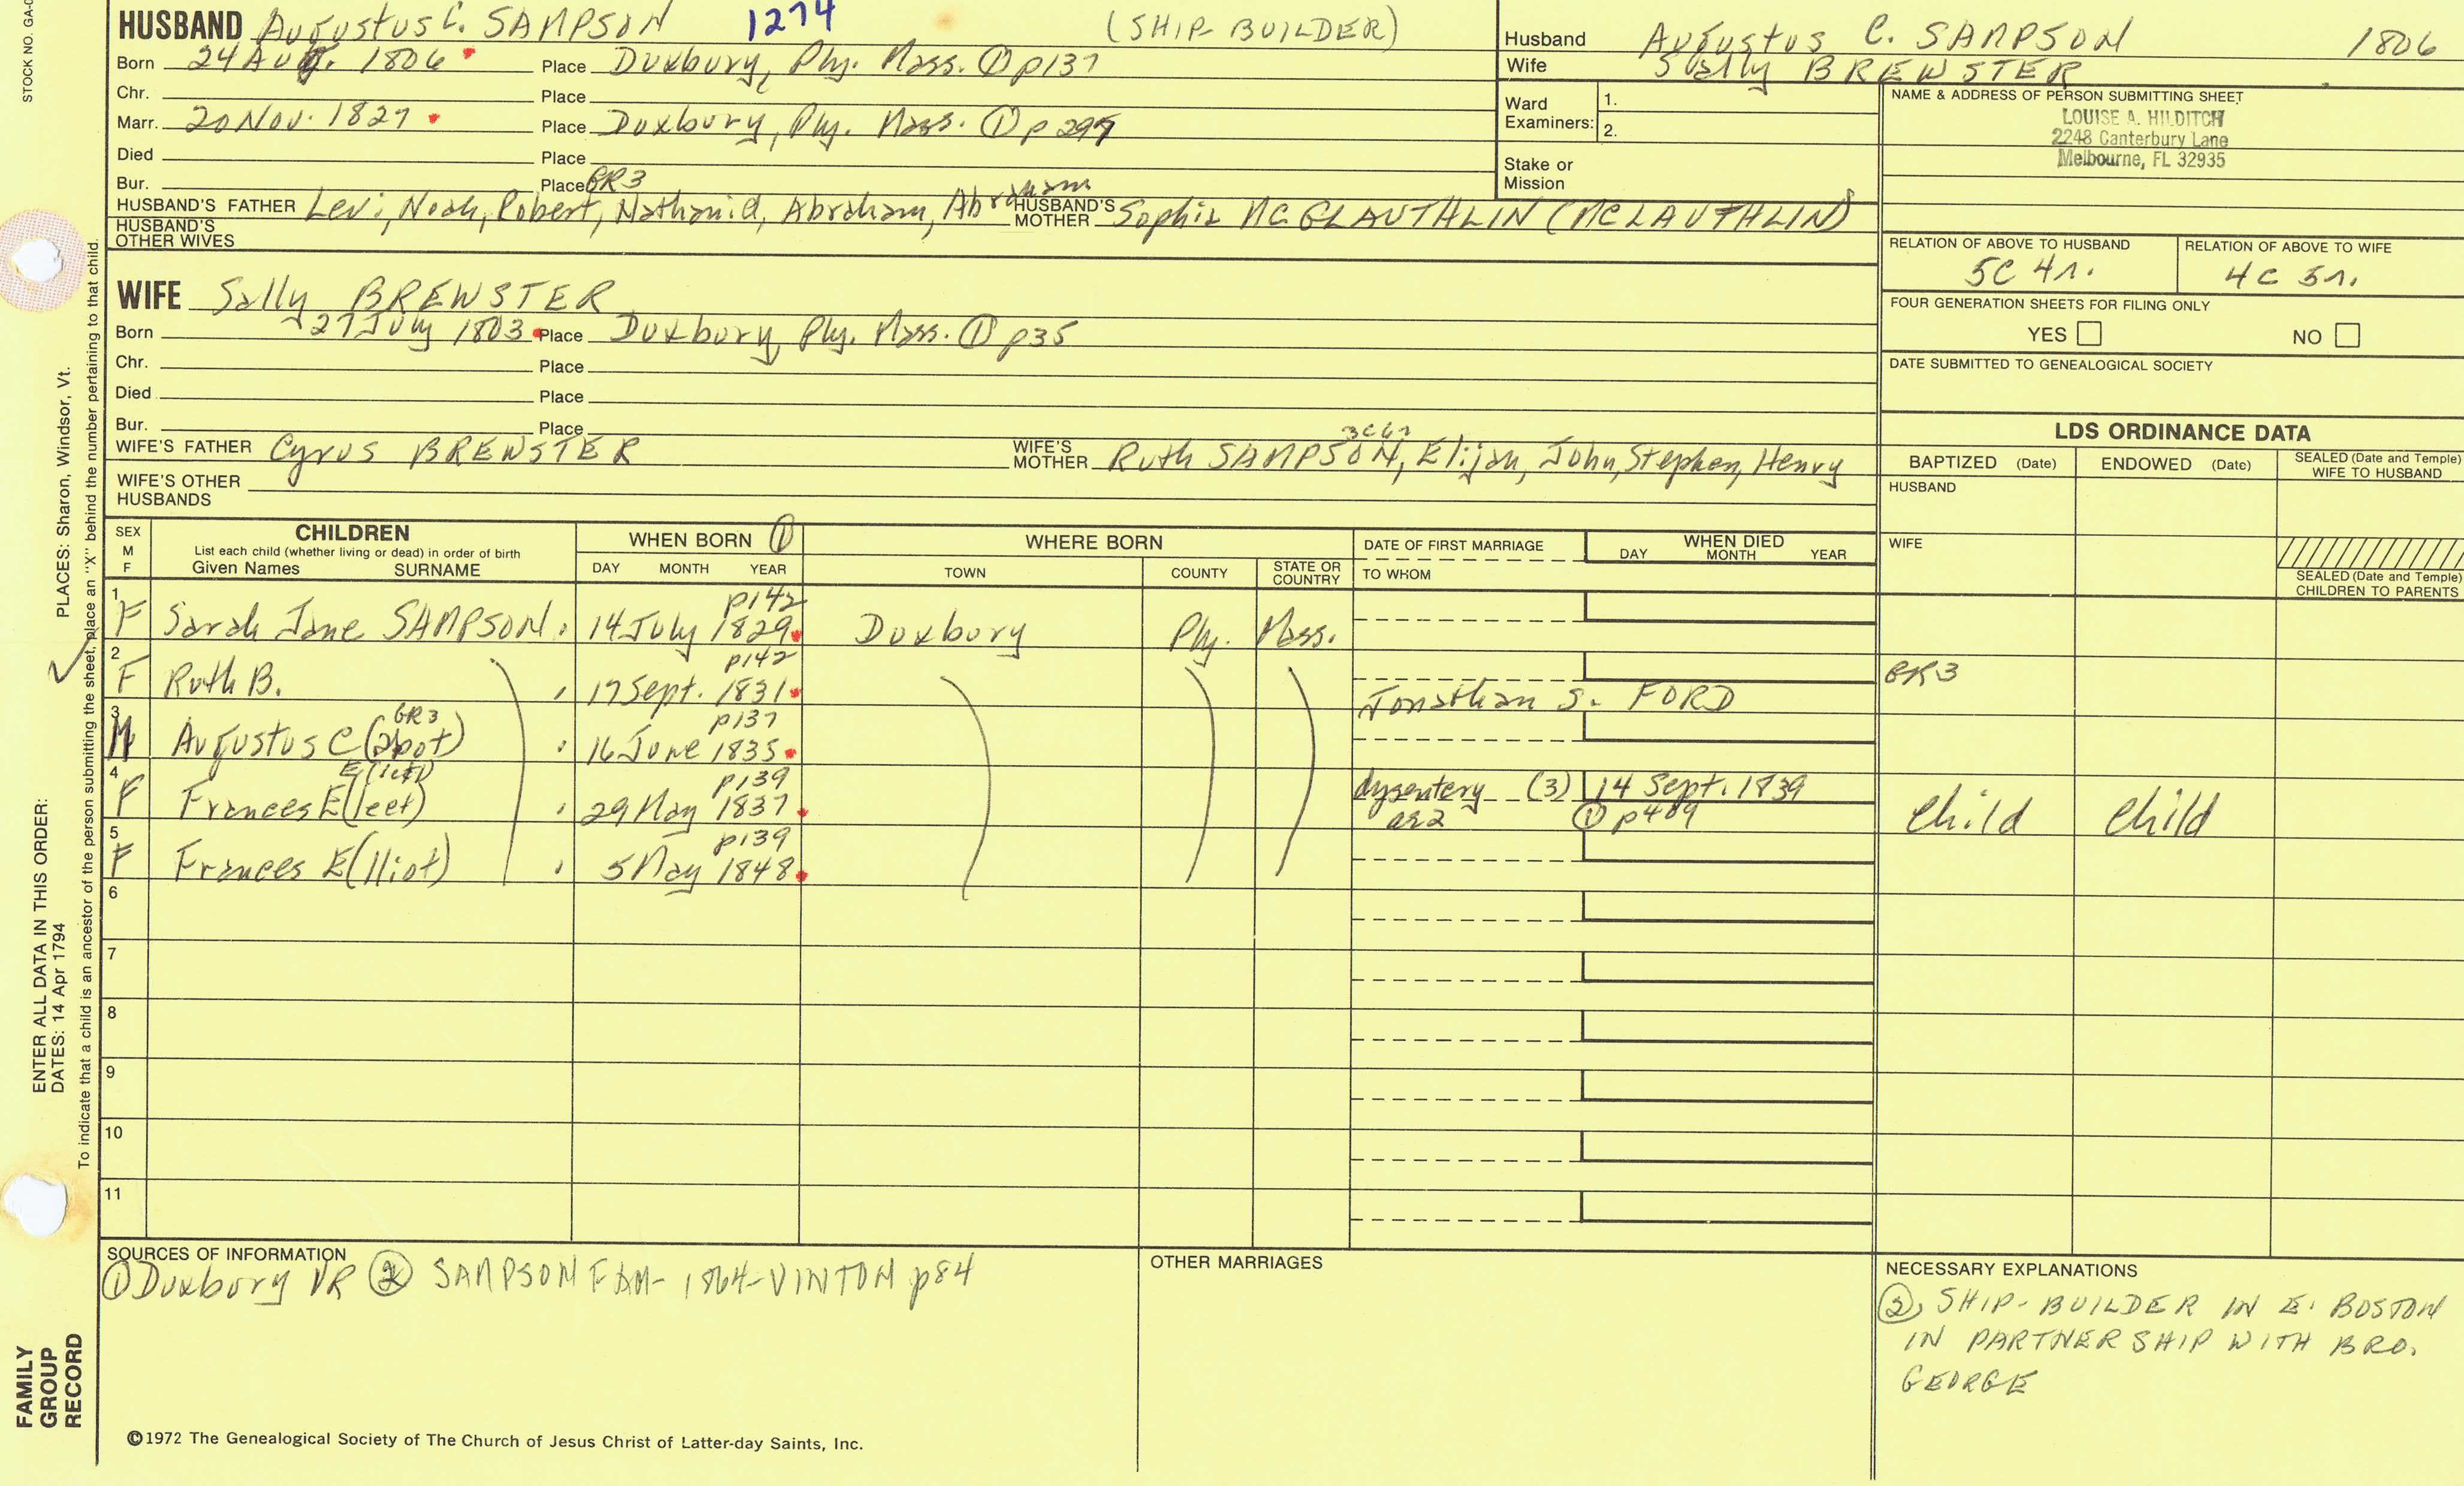 STOCK NO. GA-0
HUSBAND Augustus C. SAMPSON 1274 (SHIP-BUILDER)
Born 24 Aug. 1806 Place Duxbury, Ply. Mass. ① p137
Chr. Place
Marr. 20 Nov. 1827 Place Duxbury, Ply. Mass. ① p 297
Died Place
Bur. Place GR3
HUSBAND'S FATHER Levi, Noah, Robert, Nathaniel, Abraham, Abraham HUSBAND'S MOTHER Sophia MCGLAUTHLIN (MCLAUTHLIN)
HUSBAND'S OTHER WIVES
WIFE Sally BREWSTER
Born 27 July 1803 Place Duxbury, Ply. Mass. ① p35
Chr. Place
Died Place
Bur. Place
WIFE'S FATHER Cyrus BREWSTER WIFE'S MOTHER Ruth SAMPSON, Elijah, John, Stephen, Henry
WIFE'S OTHER HUSBANDS
Husband Augustus C. SAMPSON 1806
Wife Sally BREWSTER
Ward Examiners: 1.
2.
Stake or Mission
NAME & ADDRESS OF PERSON SUBMITTING SHEET
LOUISE A. HILDITCH
2248 Canterbury Lane
Melbourne, FL 32935
RELATION OF ABOVE TO HUSBAND RELATION OF ABOVE TO WIFE
5C 4r. 4C 5r.
FOUR GENERATION SHEETS FOR FILING ONLY
YES NO
DATE SUBMITTED TO GENEALOGICAL SOCIETY
LDS ORDINANCE DATA
BAPTIZED (Date) ENDOWED (Date) SEALED (Date and Temple) WIFE TO HUSBAND
HUSBAND
WIFE
SEALED (Date and Temple) CHILDREN TO PARENTS
SEX M F CHILDREN WHEN BORN ① WHERE BORN DATE OF FIRST MARRIAGE WHEN DIED
List each child (whether living or dead) in order of birth
Given Names SURNAME DAY MONTH YEAR TOWN COUNTY STATE OR COUNTRY TO WHOM DAY MONTH YEAR
1 F Sarah Jane SAMPSON p142 14 July 1829 Duxbury Ply. Mass.
2 F Ruth B. p142 17 Sept. 1831 Jonathan S. FORD GR3
3 M Augustus C(abot) GR3 p137 16 June 1835
4 F Frances E(leet) p139 29 May 1837 dysentery (3) 14 Sept. 1839 child child
ae2 ① p409
5 F Frances E(lliot) p139 5 May 1848
6
7
8
9
10
11
SOURCES OF INFORMATION
① Duxbury VR ② SAMPSON FAM- 1864-VINTON p84
OTHER MARRIAGES
NECESSARY EXPLANATIONS
②, SHIP-BUILDER IN E. BOSTON
IN PARTNERSHIP WITH BRO.
GEORGE
©1972 The Genealogical Society of The Church of Jesus Christ of Latter-day Saints, Inc.
FAMILY GROUP RECORD
ENTER ALL DATA IN THIS ORDER:
DATES: 14 Apr 1794 PLACES: Sharon, Windsor, Vt.
To indicate that a child is an ancestor of the person submitting the sheet, place an "X" behind the number pertaining to that child.